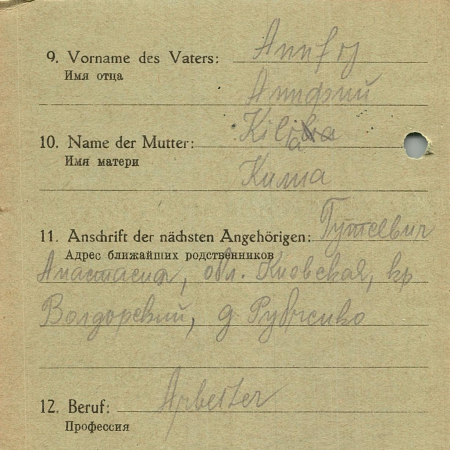 9. Vorname des Vaters: Anifij
Имя отца
Анифий
10. Name der Mutter:
Имя матери
11. Anschrift der nächsten Angehörigen:
Адрес ближайших родственников
Анастасия, обл. Киовская,
д Рубченко
12. Beruf: Arbeiter
Профессия